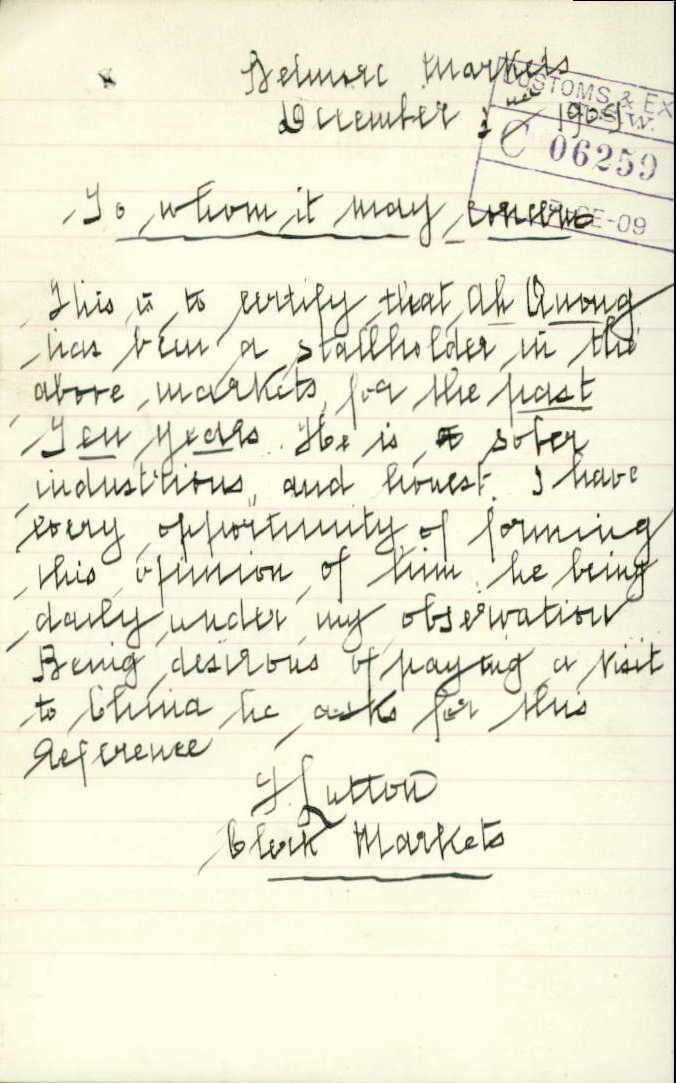 Belmore Markets
December 3 1909
CUSTOMS & EX
N.S.W.
C 06259
DE-09
To whom it may concern
This is to certify that Ah Quong
has been a stallholder in the
above markets, for the past
Ten years. He is a sober
industitious, and honest. I have
every opportunity of forming
this opinion of him. he being
daily under my observation
Being desirous of paying a visit
to China he asks for this
Reference
Clerk Markets